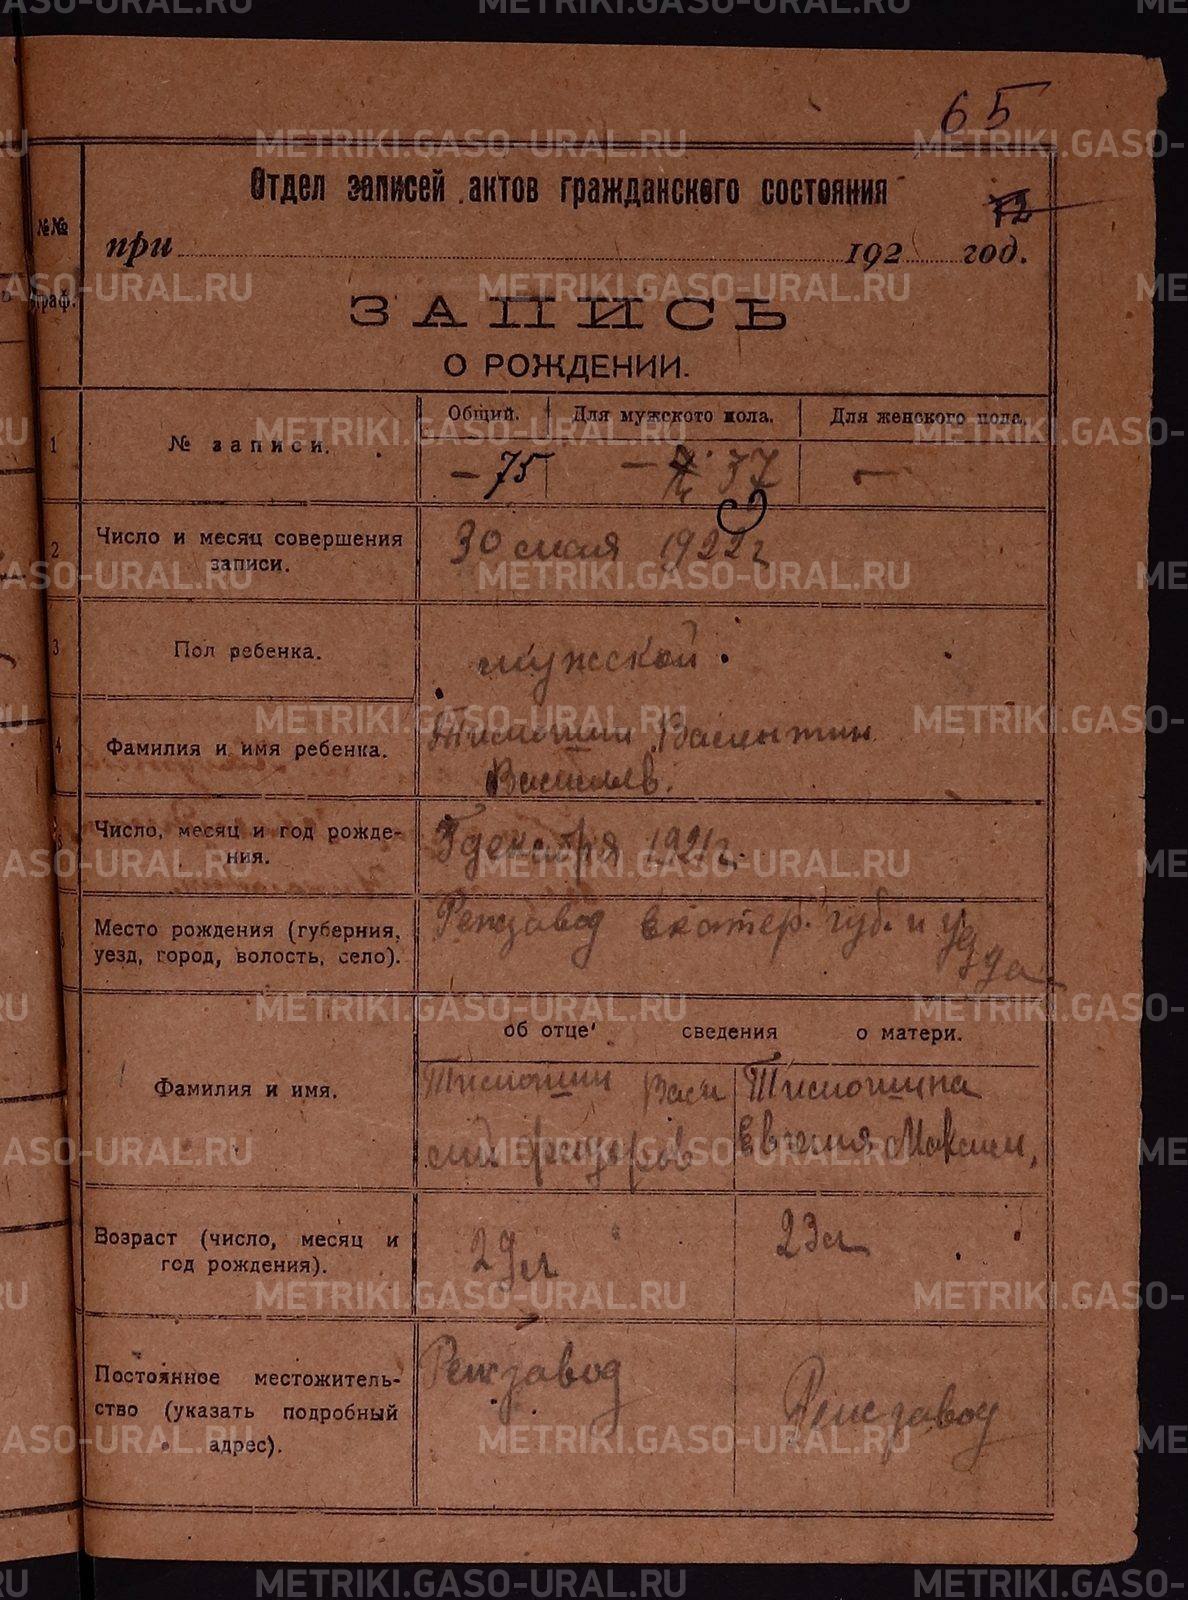 65
Отдел записей актов гражданского состояния
72
№№ граф.
при 192 год.
ЗАПИСЬ
О РОЖДЕНИИ.
Общий. Для мужского пола. Для женского пола.
1 № записи.
— 75 — 37 —
2 Число и месяц совершения записи.
30 мая 1922 г
3 Пол ребенка.
мужской
4 Фамилия и имя ребенка.
Тимошин Валентин
Васильев.
5 Число, месяц и год рожде-
ния.
декабря 1921 г.
Место рождения (губерния,
уезд, город, волость, село).
Режзавод Екатер. губ. и уезда
об отце сведения о матери.
Фамилия и имя.
Тимошин Васи
лий Федоров
Тимошина
Евгения Максим.
Возраст (число, месяц и
год рождения).
29 л 23 л
Постоянное местожитель-
ство (указать подробный
адрес).
Режзавод
Режзавод
METRIKI.GASO-URAL.RU